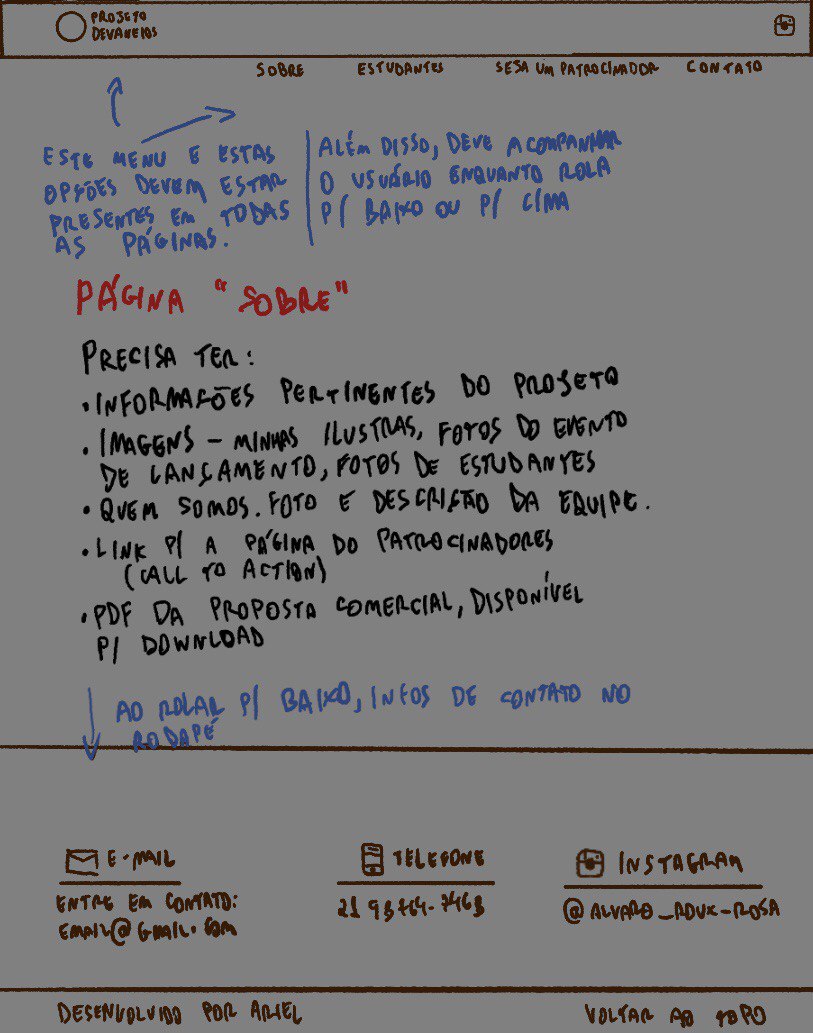 PROJETO
DEVANEIOS
SOBRE ESTUDANTES SEJA UM PATROCINADOR CONTATO
ESTE MENU E ESTAS
OPÇÕES DEVEM ESTAR
PRESENTES EM TODAS
AS PÁGINAS.
ALÉM DISSO, DEVE ACOMPANHAR
O USUÁRIO ENQUANTO ROLA
P/ BAIXO OU P/ CIMA
PÁGINA "SOBRE"
PRECISA TER:
• INFORMAÇÕES PERTINENTES DO PROJETO
• IMAGENS - MINHAS ILUSTRAS, FOTOS DO EVENTO
DE LANÇAMENTO, FOTOS DE ESTUDANTES
• QUEM SOMOS. FOTO E DESCRIÇÃO DA EQUIPE.
• LINK P/ A PÁGINA DO PATROCINADORES
(CALL TO ACTION)
• PDF DA PROPOSTA COMERCIAL, DISPONÍVEL
P/ DOWNLOAD
AO ROLAR P/ BAIXO, INFOS DE CONTATO NO
RODAPÉ
E-MAIL TELEFONE INSTAGRAM
ENTRE EM CONTATO:
EMAIL@GMAIL.COM
21
DESENVOLVIDO POR ARIEL VOLTAR AO TOPO